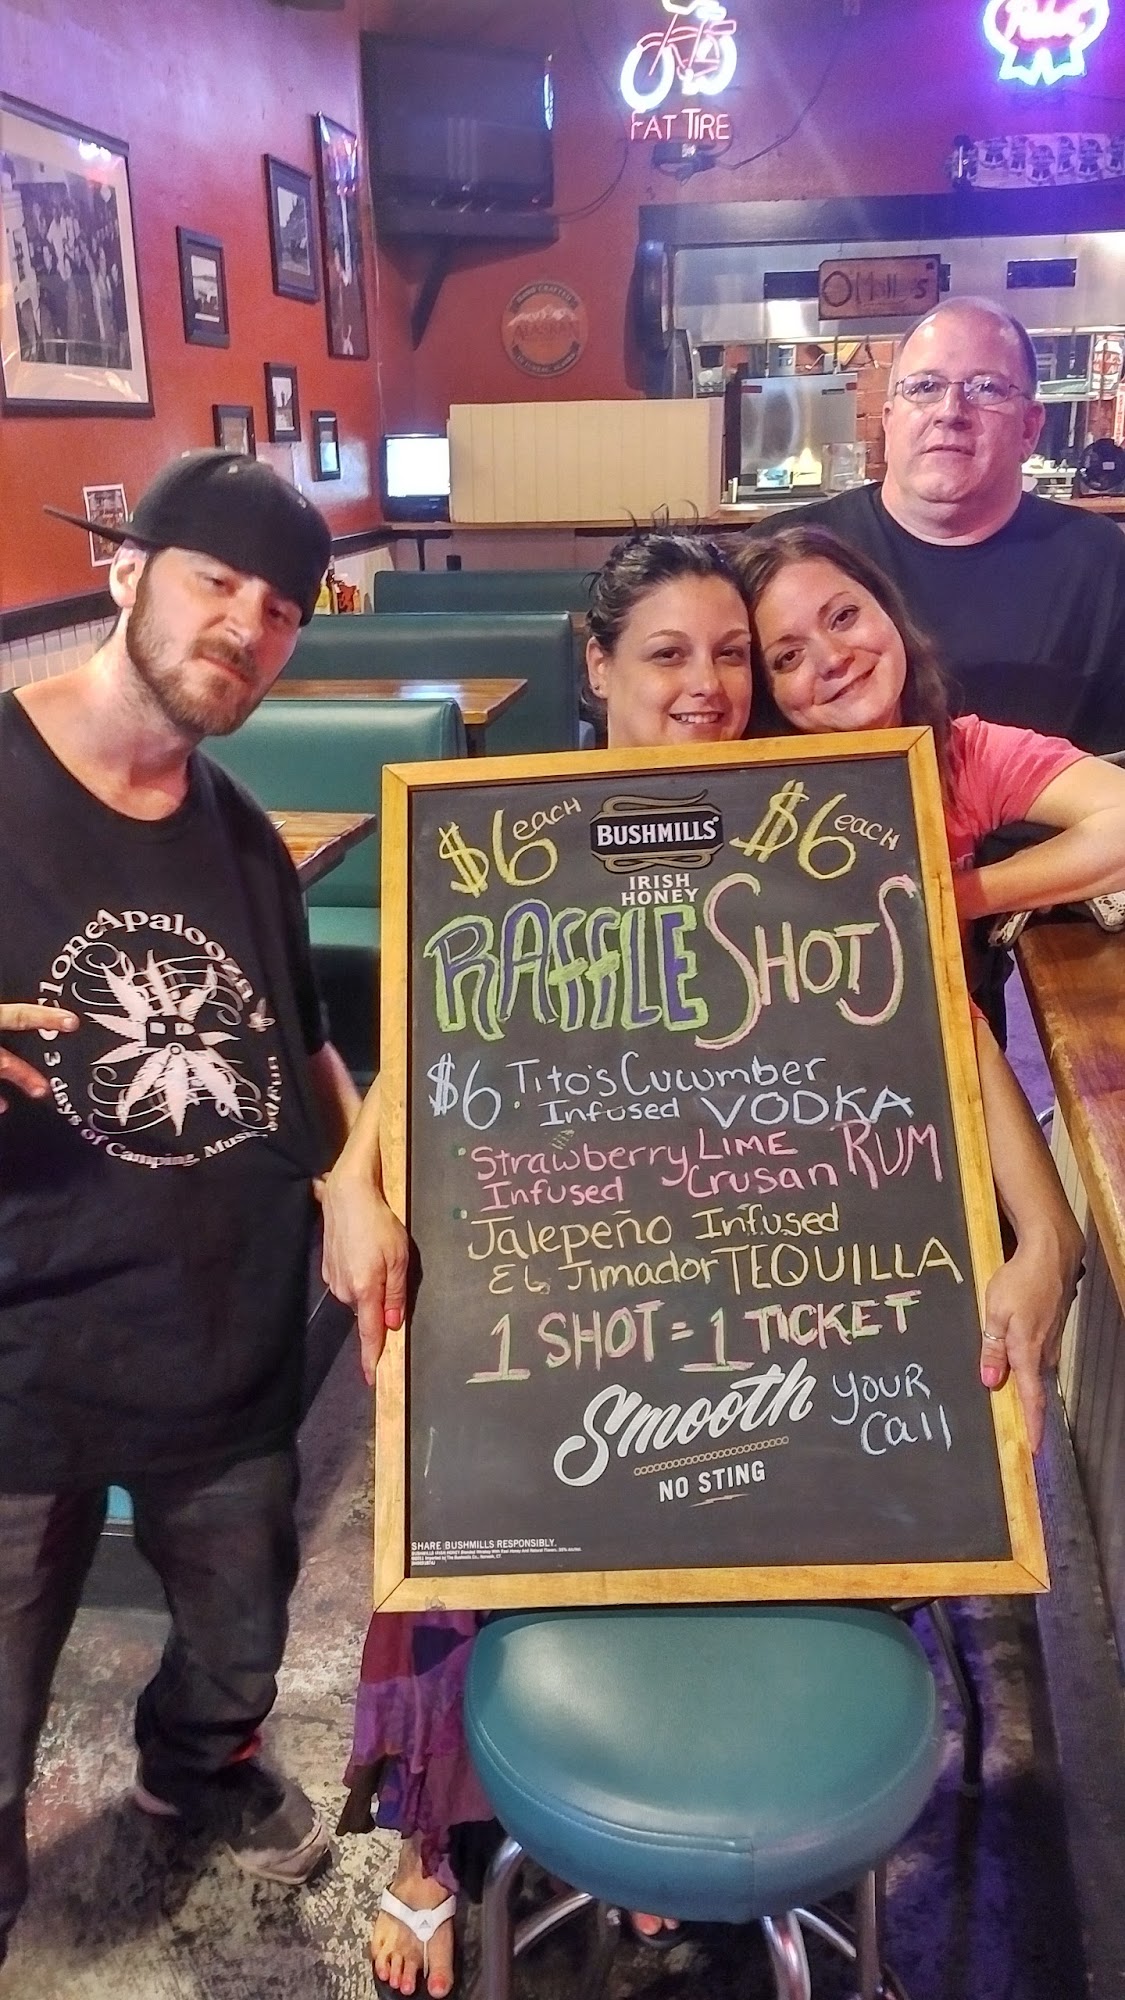 Pabst
FAT TIRE
HAND CRAFTED
ALASKAN
O'Malley's
$6 each
$6 each
BUSHMILLS
IRISH
HONEY
RAFFLE SHOTS
$6 Tito's Cucumber
Infused VODKA
Strawberry LIME
Infused Crusan RUM
Jalepeño Infused
EL Jimador TEQUILLA
1 SHOT = 1 TICKET
Smooth
YOUR
Call
NO STING
SHARE BUSHMILLS RESPONSIBLY.
CloneApalooza
3 days of Camping, Music